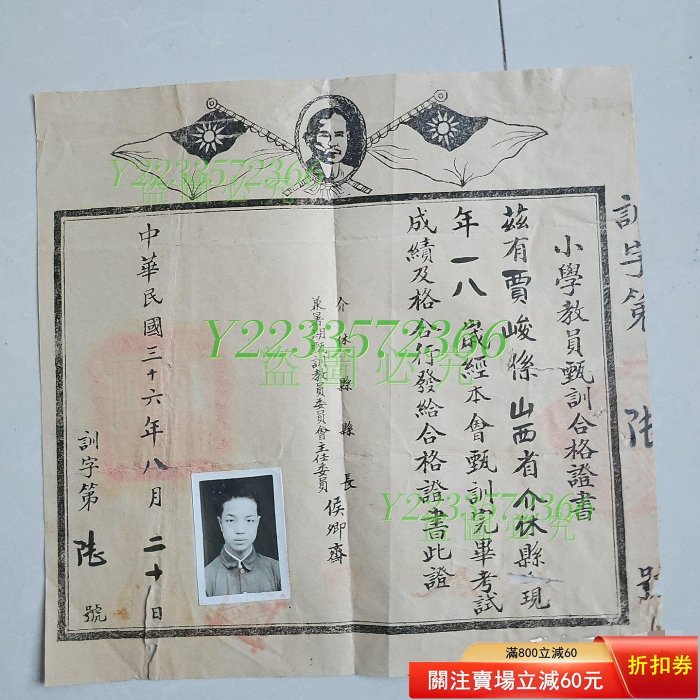 小學教員甄訓合格證書
茲有賈峻係山西省介休縣現
年一八歲經本會甄訓完畢考試
成績及格合行發給合格證書此證
介休縣縣長
兼暑期甄訓教員委員會主任委員
侯卿齋
中華民國三十六年八月二十日
訓字第陸號
訓字第陸號
Y2233572366
盜圖必究
Y2233572366
盜圖必究
Y2233572366
盜圖必究
滿800立減60
關注賣場立減60元
折扣券